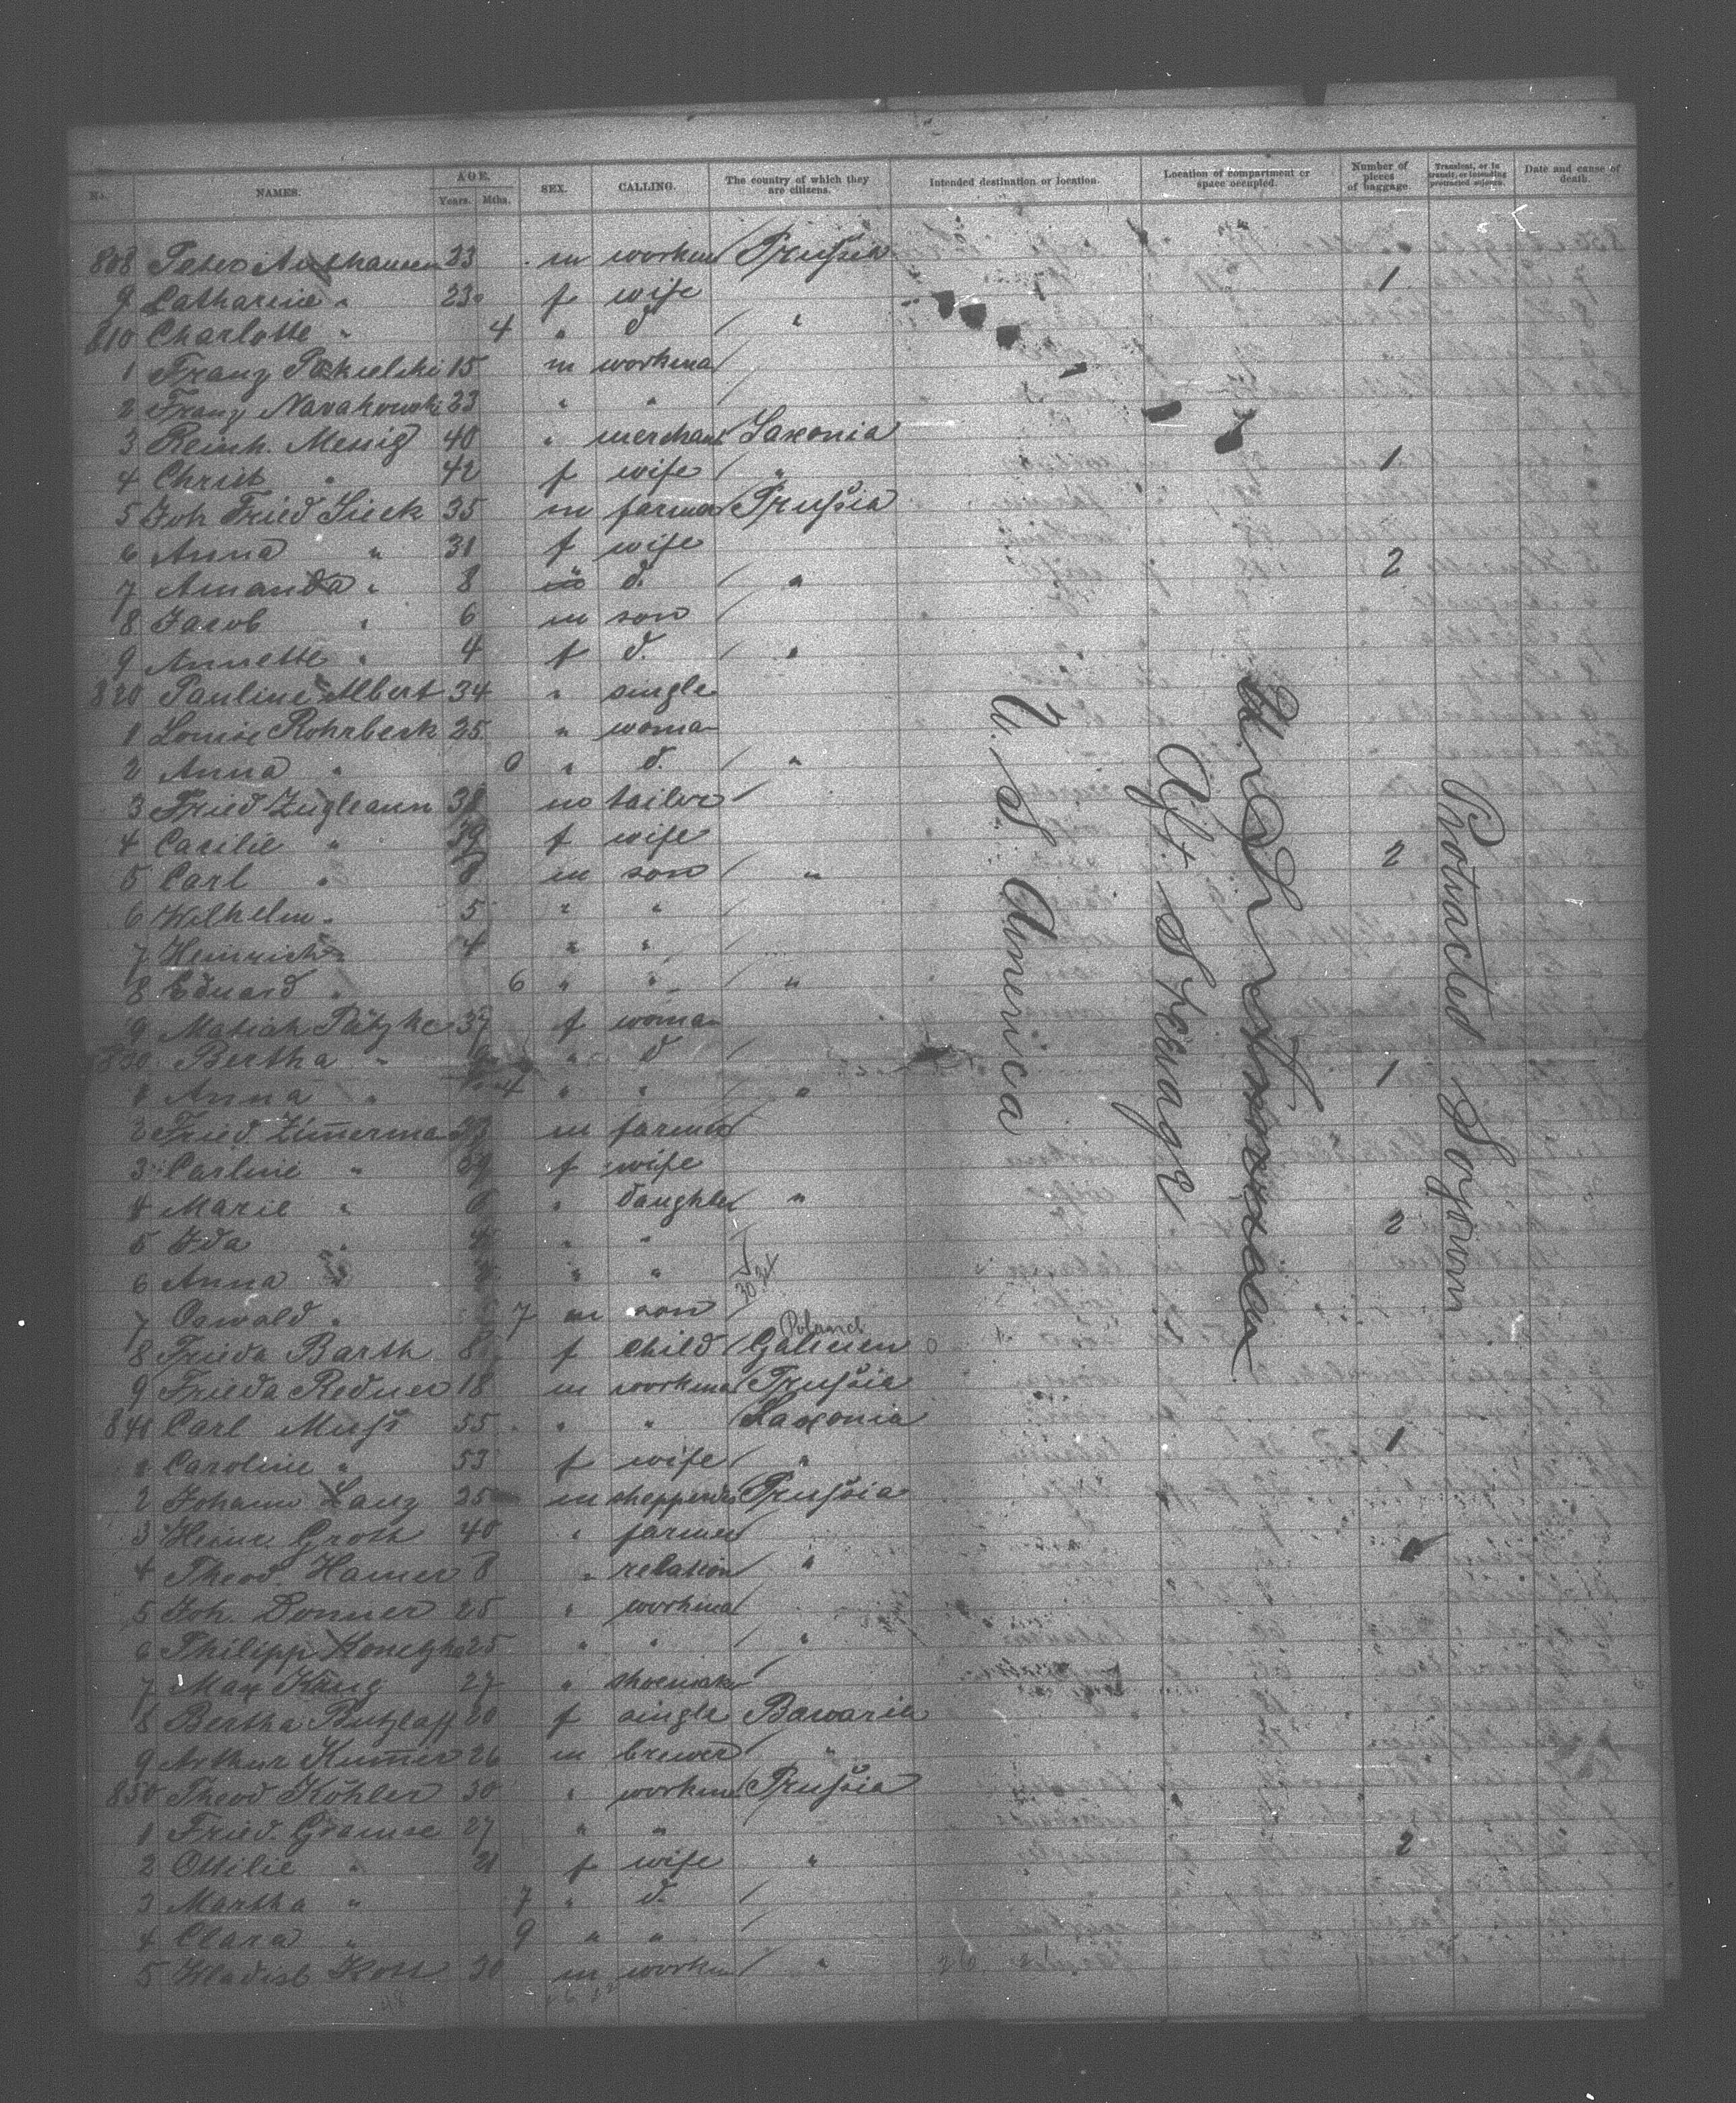 No. NAMES. AGE. Years. Mths. SEX. CALLING. The country of which they are citizens. Intended destination or location. Location of compartment or space occupied. Number of pieces of baggage. Transient, or in transit, or intending protracted sojourn. Date and cause of death.
808 Peter 23 m workm Prussia
9 Catharine " 23 f wife 1
810 Charlotte " 4 " d "
1 Franz 15 m workma
2 Franz Navakowski 23 " "
3 Reinh. Messig 40 " merchant Saxonia
4 Christ " 42 f wife " 1
5 Joh Fried Sieck 35 m farmer Prussia
6 Anna " 31 f wife
7 Amanda " 8 " d. " 2
8 Jacob " 6 m son
9 Annette " 4 f d. "
820 Pauline Albert 34 " single
1 Louise Rohrbeck 25 " woma
2 Anna " 0 " d. "
3 Fried 38 m tailor
4 Cacilie " 39 f wife
5 Carl " 8 m son " 2
6 Wilhelm " 5 " "
7 Heinrich " 4 " "
8 Eduard " 6 " " "
9 Pätzke 37 f woman
830 Bertha " 9 " d
1 Anna " 4 " " " 1
2 Fried. Zimerma m farmer
3 Carline " f wife
4 Marie " 6 " daughter "
5 Ida " 4 " " 2
6 Anna " " "
7 Oswald " 7 m son
Poland
8 Frieda Barth 8 f child Galicien
9 Frieda Redner 18 m workma Prussia
840 Carl Muss 55 " " Saxonia
1 Caroline " 53 f wife " 1
2 Johann Lanz 25 m shepperd Prussia
3 Heinr. Groth 40 " farmer
4 Theod. Hamer 8 " relation "
5 Joh. Donner 25 " workma
6 Philipp 25 " " "
7 Max Krug 27 " shoemaker
8 Bertha Butzlaff 20 f single Bavaria
9 Arthur Kumer 26 m brewer "
850 Theod Köhler 30 " workm Prussia
1 Fried. Gramse 27 " "
2 Ottilie " 21 f wife " 2
3 Martha " 7 " d.
4 Clara " 9 " "
5 Wladisl Kott 30 m workm "
U. S. America
Aft. Steerage
Protracted Sojourn